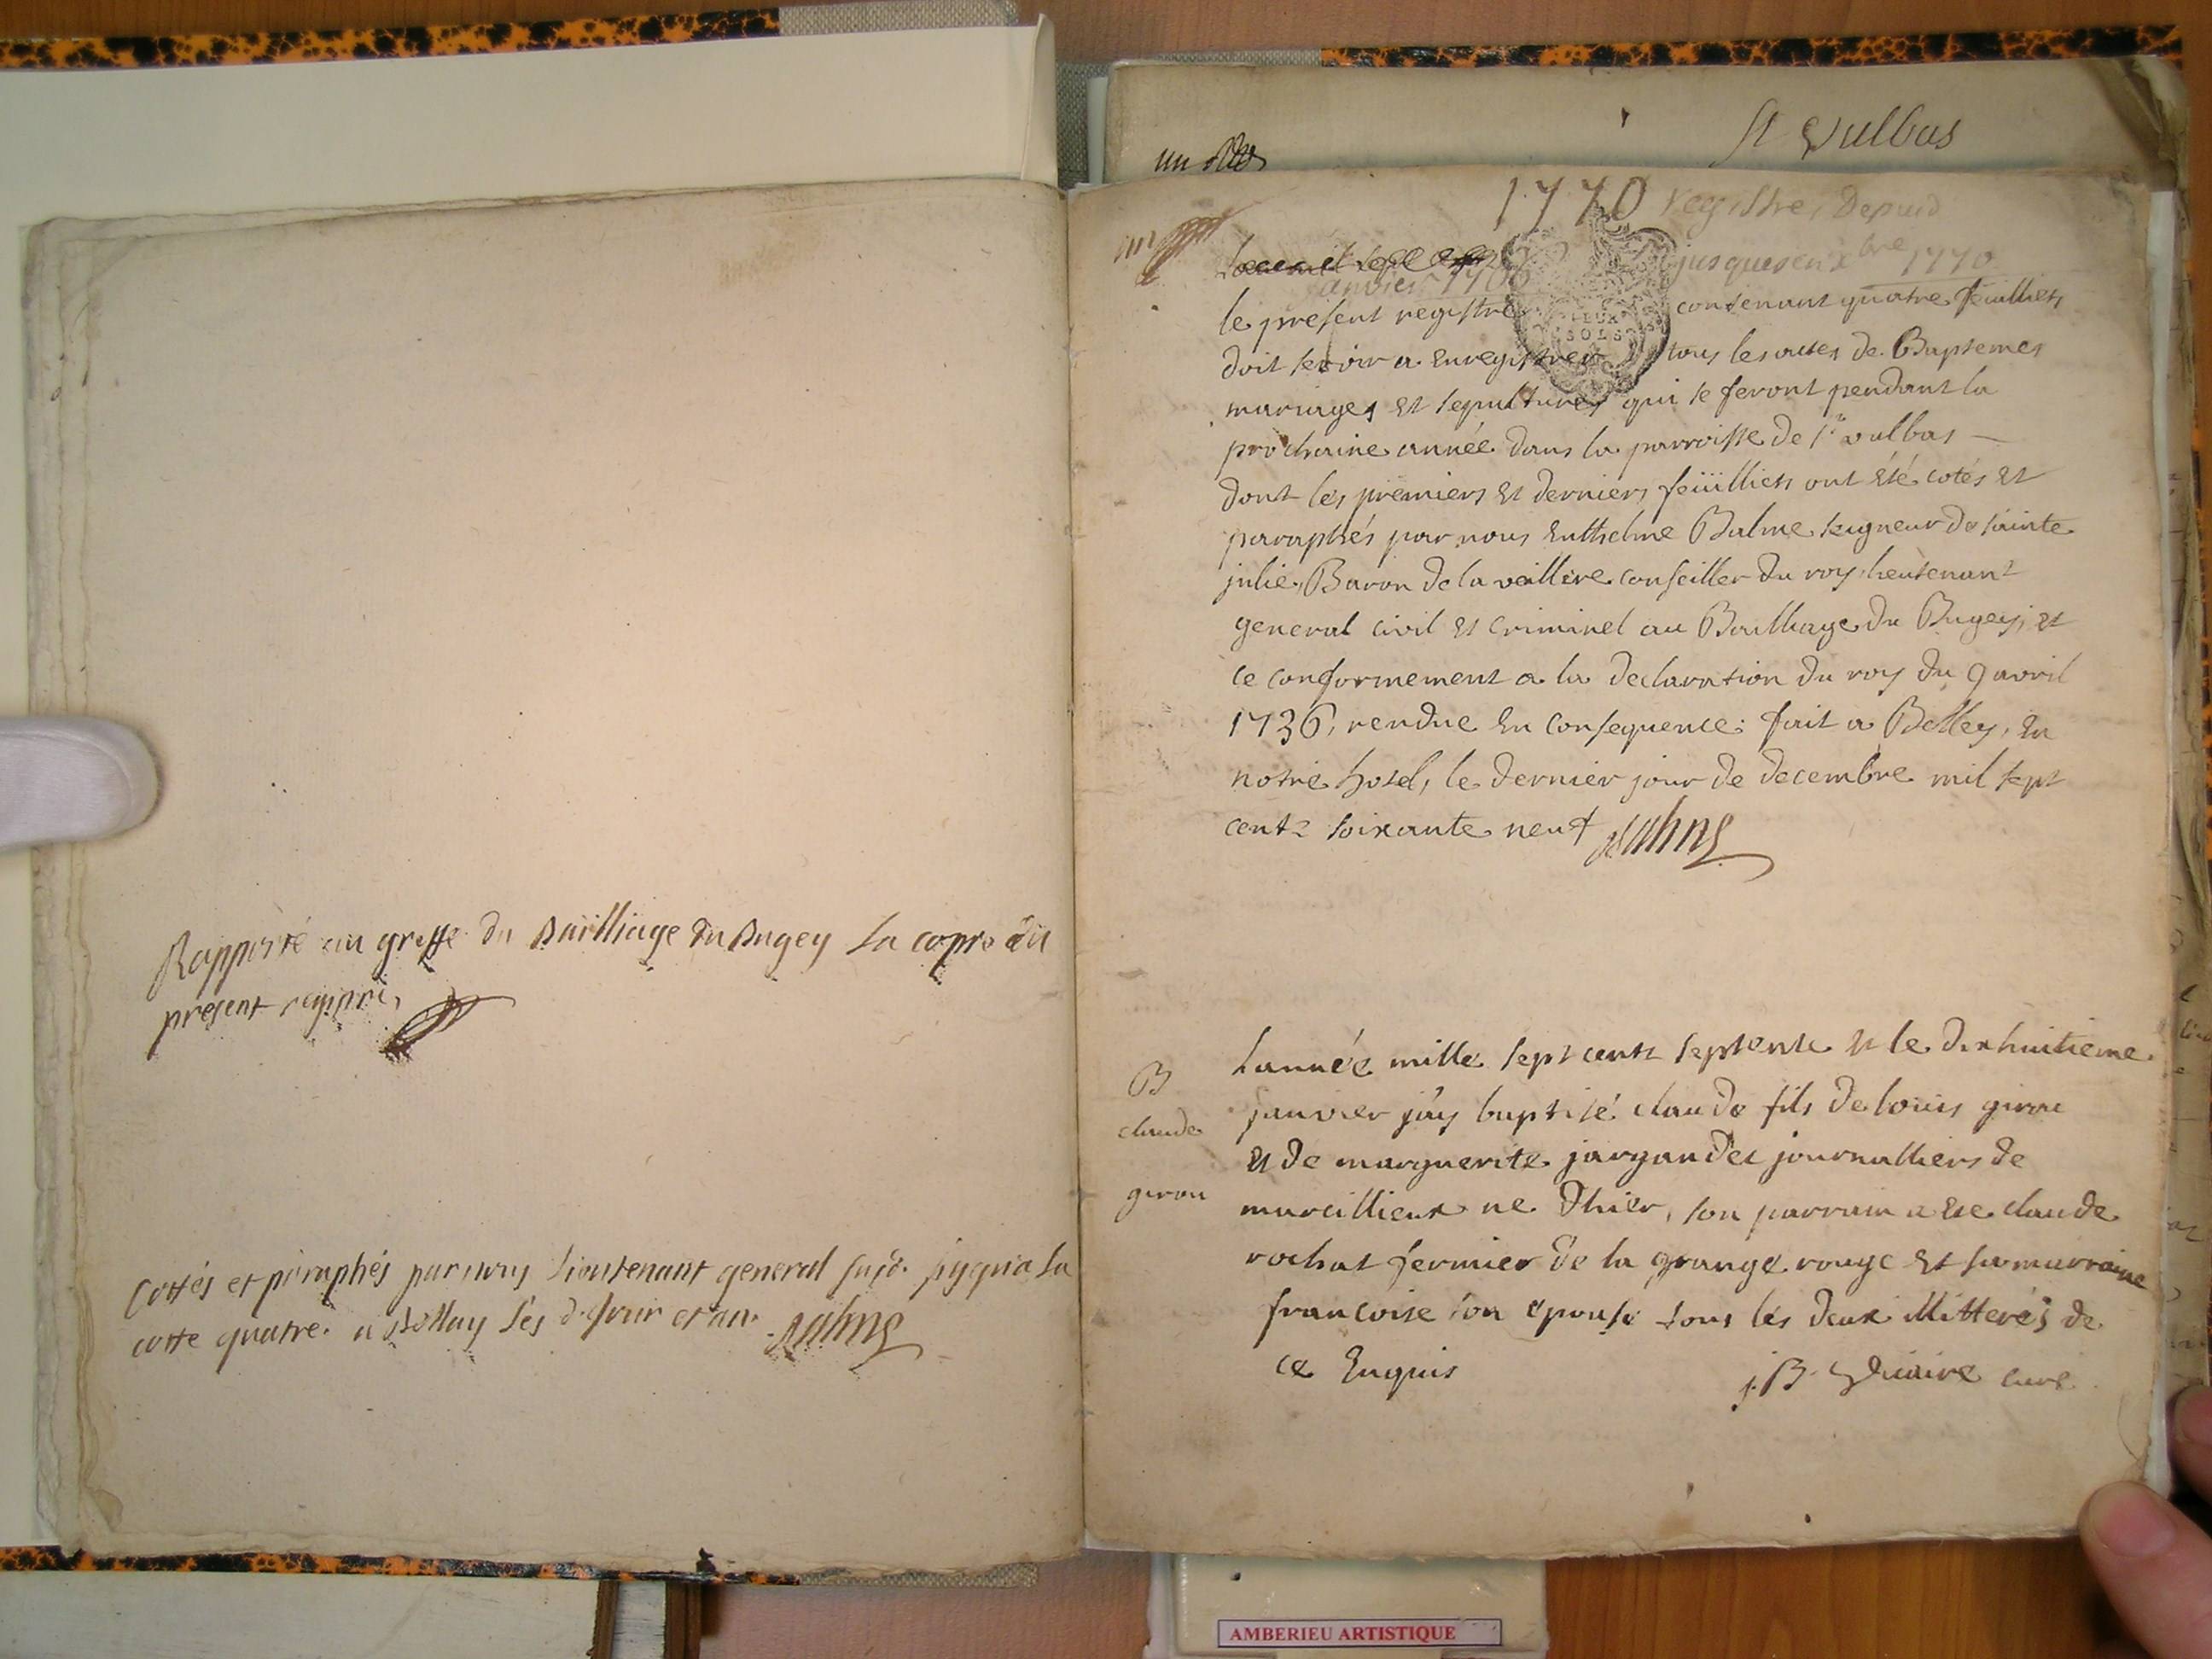 Rapporté au greffe du Bailliage du Bugey la copie du
present registre,
Cottés et paraphés par nous Lieutenant general susd. jusqu'a la
cotte quatre. a Bellay les d. jour et an. Balme
un
St Vulbas
1770 registre, Depuis
jusques en Xbre 1770
janvier 1770
le present registre contenant quatre feuilliets
DEUX
SOLS
doit servir a Enregistrer tous les actes de Baptemes
mariages et sepultures qui se feront pendant la
prochaine année dans la parroisse de St vulbas
dont les premiers et derniers feüilliets ont été cotés et
paraphés par nous Enthelme Balme seigneur de sainte
julie, Baron de la veillere conseiller du roy, lieutenant
general civil et criminel au Bailliage du Bugey, et
ce conformement a la declaration du roy du 9 avril
1736, rendue en consequence: fait a Belley, en
notre hotel, le dernier jour de decembre mil sept
cents soixante neuf Balme
B
claude
girou
L'année mille sept cents septente et le dix huitieme
janvier j'ay baptisé claude fils de louis girou
et de marguerite jargandet journalliers de
marcillieux ne d'hier, son parrain a ete claude
rochat fermier de la grange rouge et sa marraine
francoise son epouse tous les deux illitterés de
ce Enquis
j. B. curé
AMBERIEU ARTISTIQUE